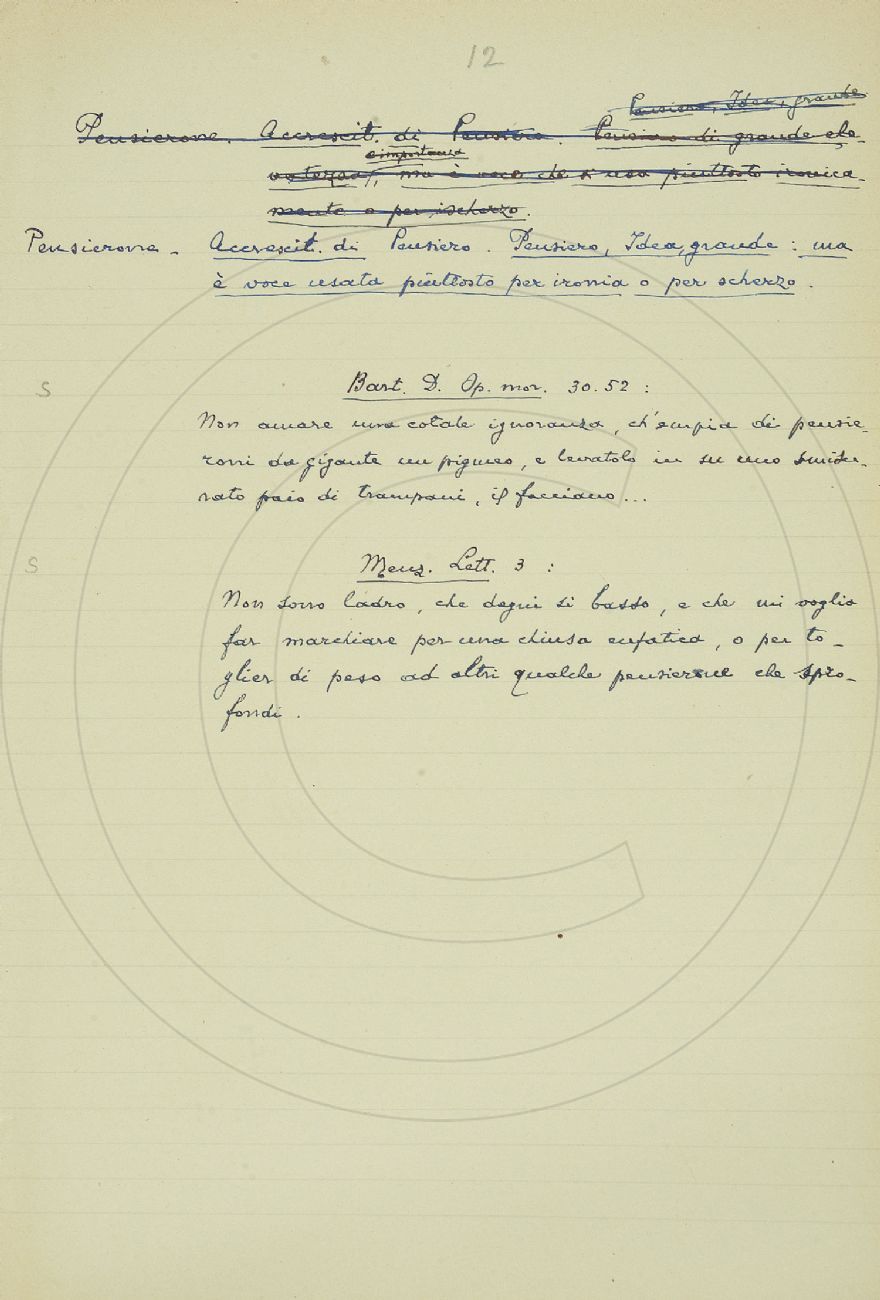 12
Pensiero, Idea, grande
Pensierone. Accrescit. di Pensiero. Pensiero di grande ele-
e importanza
vatezza, ma è voce che si usa piuttosto ironica-
mente o per ischerzo.
Pensierone - Accrescit. di Pensiero. Pensiero, Idea, grande: ma
è voce usata piuttosto per ironia o per scherzo.
S
Bart. D. Op. mor. 30. 52:
Non amare una cotale ignoranza, ch'empia di pensie-
roni da gigante un pigmeo, e levatolo in su uno smisu-
rato paio di trampani, il facciano...
S
Menz. Lett. 3:
Non sono ladro, che degni sì basso, e che mi voglia
far marchiare per una chiusa enfatica, o per to-
glier di peso ad altri qualche pensierone che spro-
fondi.